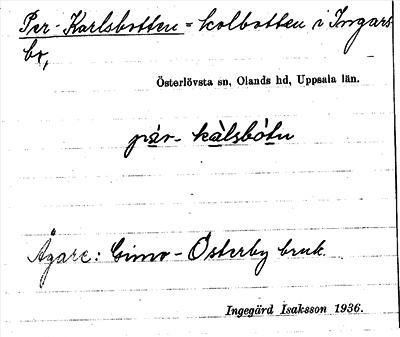 Per-Karlsbotten = kolbotten i Ingars
bo,
Österlövsta sn, Olands hd, Uppsala län.
pä̀r- kàlsbótn
Ägare: Gimo-Österby bruk.
Ingegärd Isaksson 1936.